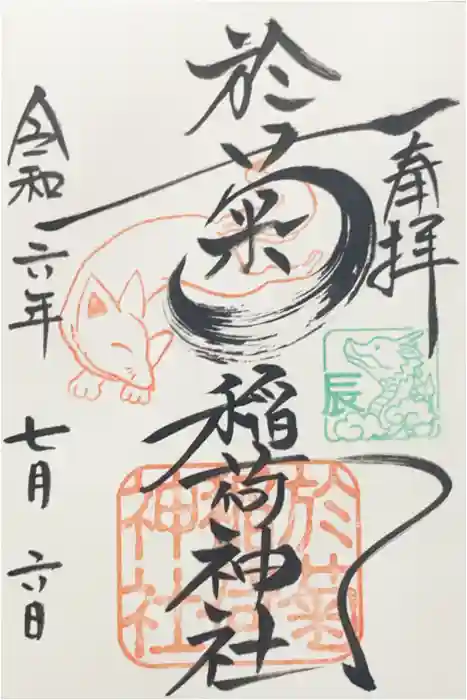 奉拝
於菊稲荷神社
令和六年七月六日
辰
於菊
稲荷
神社